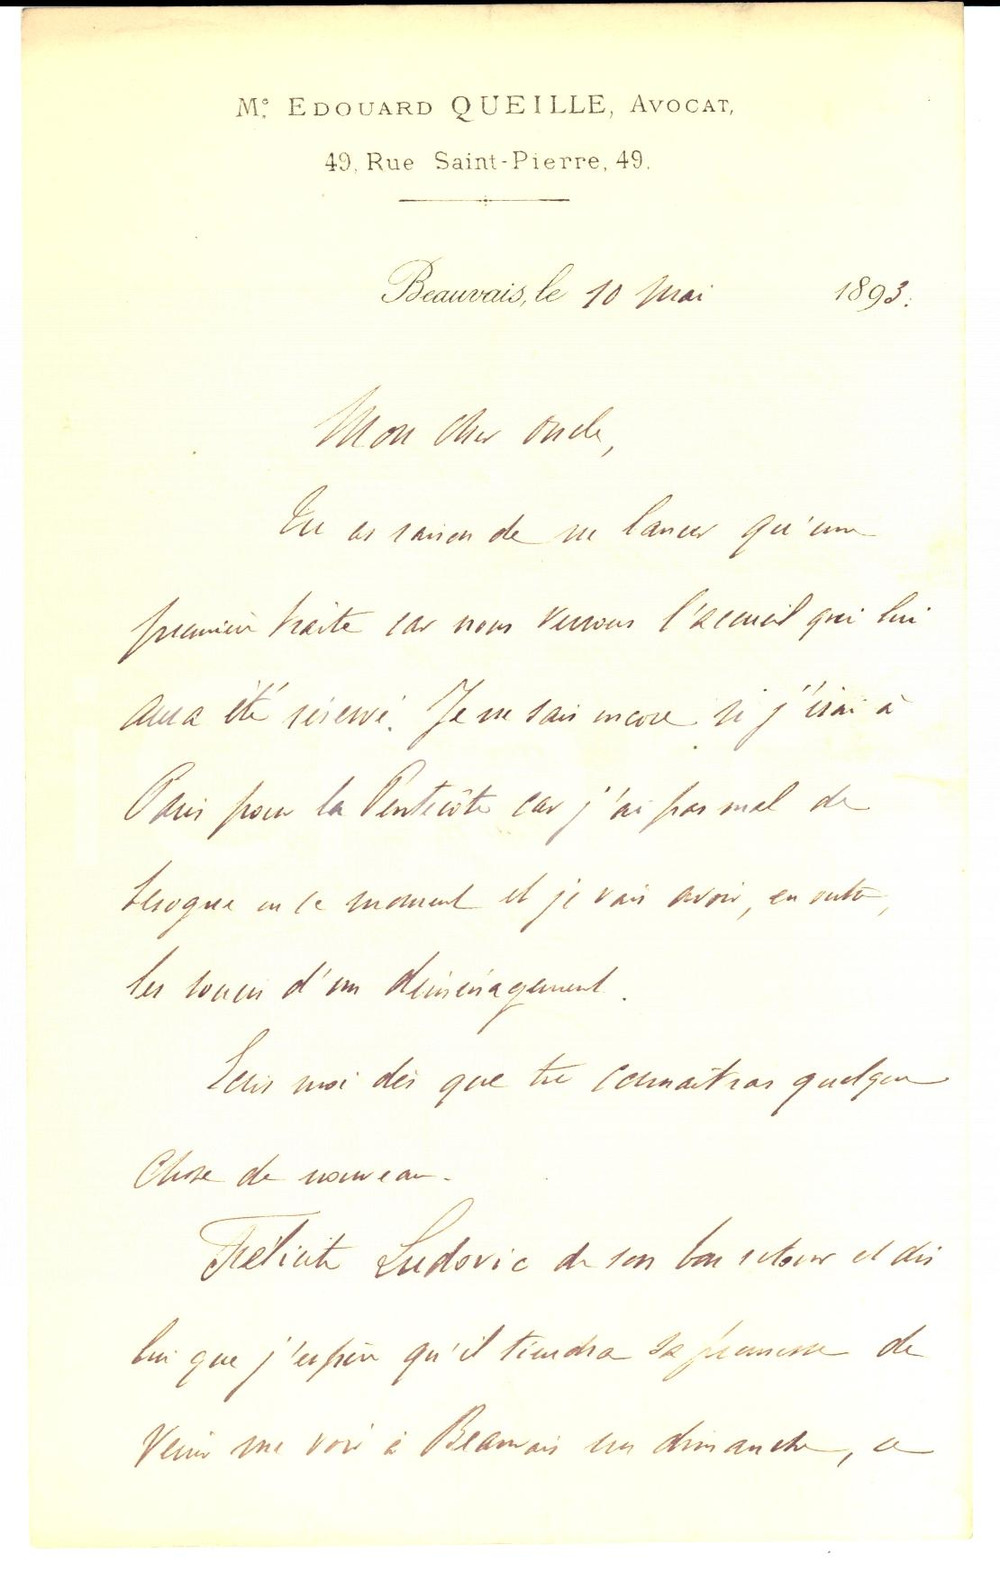 Me. EDOUARD QUEILLE, AVOCAT,
49, Rue Saint-Pierre, 49.
Beauvais, le 10 Mai 1893.
Mon cher oncle,
Tu as raison de ne lancer qu'une
première traite car nous verrons l'accueil qui lui
aura été réservé. Je ne sais encore si j'irai à
Paris pour la Pentecôte car j'ai pas mal de
besogne en ce moment et je vais avoir, en outre,
les soucis d'un déménagement.
Ecris moi dès que tu connaîtras quelque
chose de nouveau.
Félicite Ludovic de son bon retour et dis
lui que j'espère qu'il tiendra sa promesse de
venir me voir à Beauvais un dimanche, ce